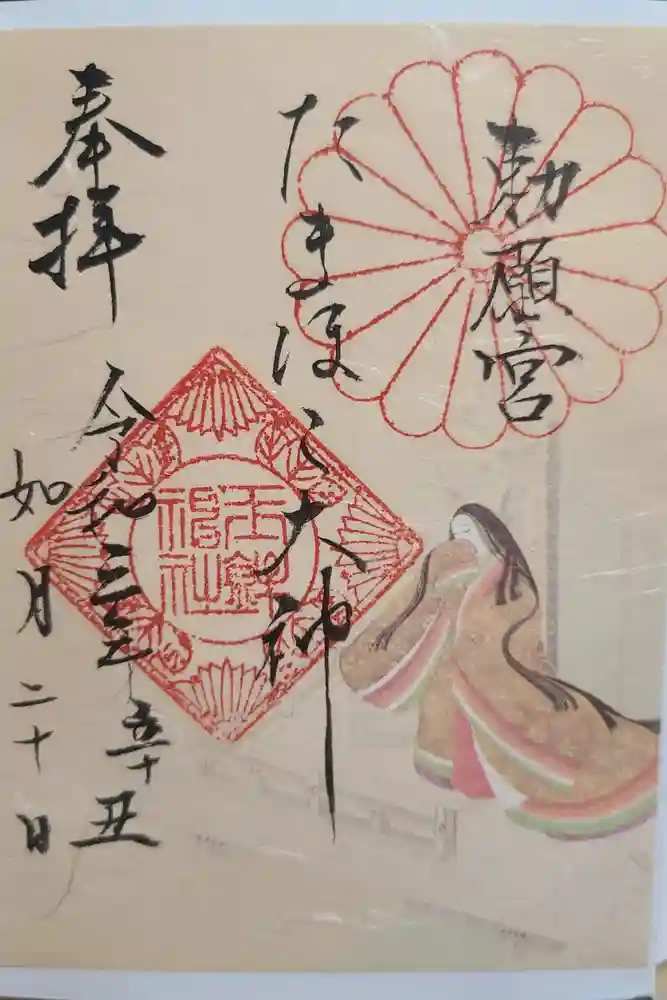 勅願宮
たまほこ大神
奉拝
令和三年辛丑
如月二十日
玉鉾
神社